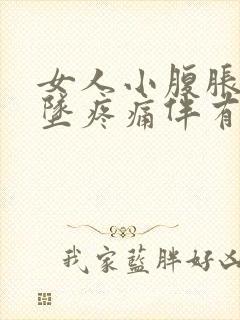 女人小腹脹
墜疼痛伴有
我家藍胖好凶